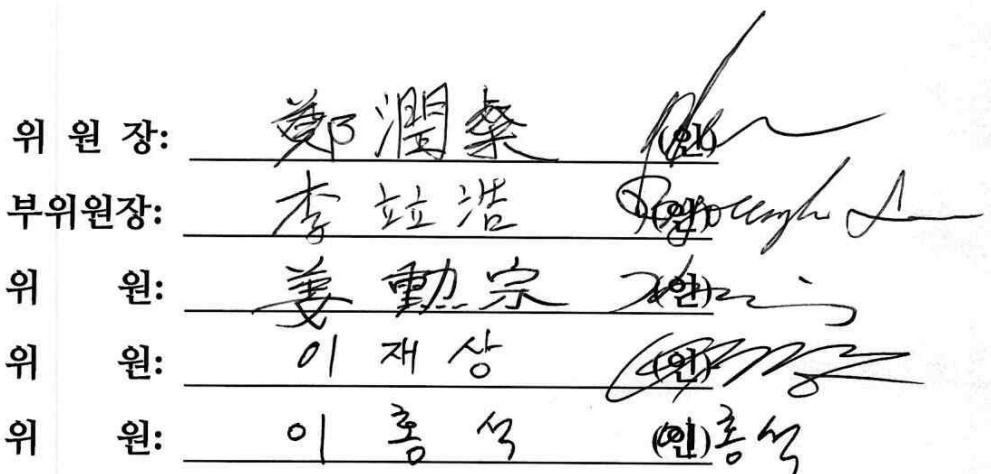 위 원 장: 鄭潤燊 (인)
부위원장: 李竝浩 (인)
위 원: 姜勳宗 (인)
위 원: 이재상 (인)
위 원: 이홍석 (인) 홍석